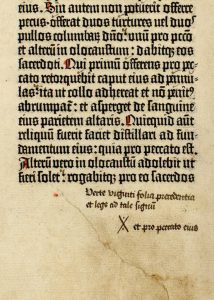 eius. Sin autem non potuerit offerre
pecus: offerat duos turtures vel duo
pullos columbaꝝ dño: unũ pro pcc̃o
et alterũ in olocaustũ: dabitq̃ eos
sacerdoti. Qui primũ offerens pro pec-
cato retorquebit caput eius ad pennu-
las: ita ut collo adhereat et nõ penit9
abrumpat̃: et asperget de sanguine
eius parietem altaris. Quicquid autẽ
reliquũ fuerit faciet distillari ad fun-
damentum eius: quia pro peccato est.
Alterũ vero in olocaustũ adolebit ut
fieri solet: rogabitq̃ pro eo sacerdos
Verte viginti folia precedentia
et lege ad tale signũ
X et pro peccato eius